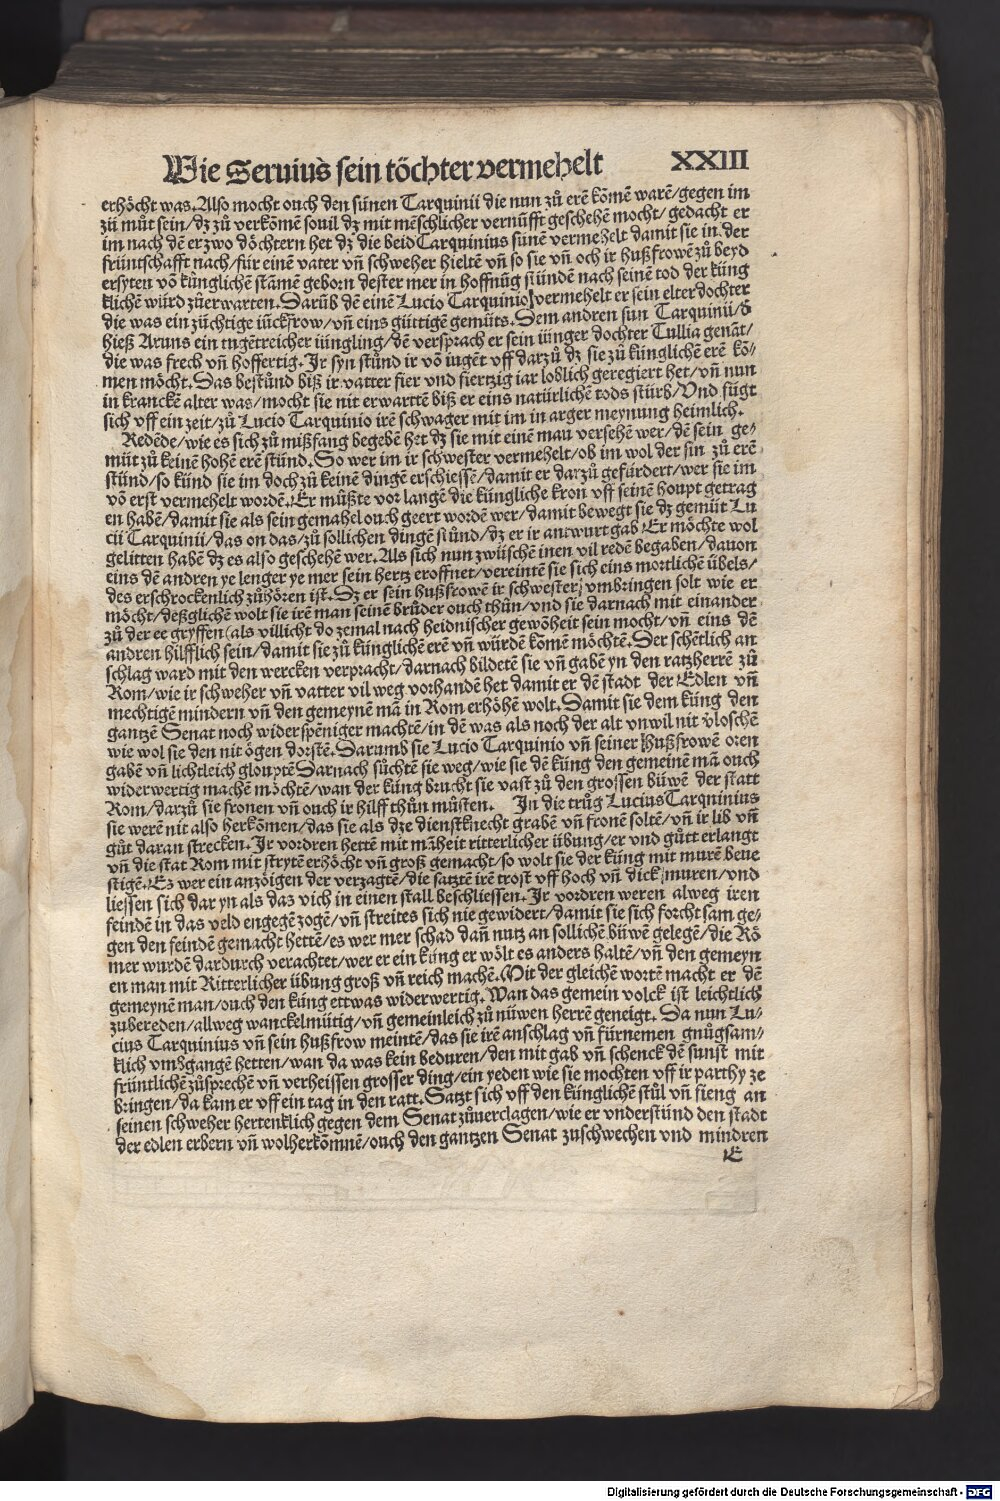 Wie Seruius sein töchter vermehelt XXIII
erhöcht was. Also mocht ouch den sünen Tarquinii die nun zů erē kōmē warē/gegen im
zů můt sein/dz zů verkōmē souil dz mit mēschlicher vernufft geschehē mocht/ gedacht er
im nach dē er zwo döchtern het dz die beid Tarquinius sünē vermehelt damit sie in der
früntschafft nach/für einē vater vñ schweher hieltē vñ so sie vñ och ir hußfrowē zů beyd
ersyten vō künglichē stāmē geborn dester mer in hoffnūg stündē nach seinē tod der küng
klichē würd zůerwarten. Darūb dē einē Lucio Tarquinio vermehelt er sein elter dochter
die was ein züchtige iückfrow/vñ eins güttigē gemüts. Dem andren sun Tarquinii/d
hieß Aruns ein tugētreicher iüngling/dē versprach er sein iünger dochter Tullia genāt/
die was frech vñ hoffertig. Ir syn stůnd ir vō iugēt vff darzů dz sie zů künglichē erē kō/
men möcht. Das bestůnd biß ir vatter fier vnd fiertzig iar loblich geregiert het/vñ nun
in kranckē alter was/mocht sie nit erwarttē biß er eins natürlichē tods stürb/Vnd fügt
sich vff ein zeit/zů Lucio Tarquinio irē schwager mit im in arger meynung heimlich.
Redēde/wie es sich zů mißfang begebē het dz sie mit einē man versehē wer/dē sein ge/
müt zů keinē hohē erē stünd. So wer im ir schwester vermehelt/ob im wol der sin zů erē
stünd/so künd sie im doch zů keinē dingē erschiessē/damit er darzů gefürdert/wer sie im
vō erst vermehelt wordē. Er müßte vor langē die küngliche kron vff seinē houpt getrag
en habē/damit sie als sein gemahel ouch geert wordē wer/damit bewegt sie dz gemüt Lu
cii Tarquinii/das on das/zů sollichen dingē stůnd/dz er ir antwurt gab/Er möchte wol
gelitten habē dz es also geschehē wer. Als sich nun zwüschē inen vil redē begaben/dauon
eins dē andren ye lenger ye mer sein hertz eroffnet/vereintē sie sich eins mortlichē übels/
des erschrockenlich zůhören ist. Dz er sein hußfrowē ir schwester/vmbringen solt wie er
möcht/deßglichē wolt sie irē man seinē brůder ouch thůn/vnd sie darnach mit einander
zů der ee gryffen(als villicht do zemal nach heidnischer gewōheit sein mocht/vñ eins dē
andren hilfflich sein/damit sie zů künglichē erē vñ würdē kōmē möchtē. Der schētlich an
schlag ward mit den wercken verpracht/darnach bildetē sie vñ gabē yn den ratzherrē zů
Rom/wie ir schweher vñ vatter vil weg vorhandē het damit er dē stadt der Edlen vñ
mechtigē mindern vñ den gemeynē mā in Rom erhöhē wolt. Damit sie dem küng den
gantzē Senat noch widerspēniger machtē/in dē was als noch der alt vnwil nit v̓loschē
wie wol sie den nit ögen dorstē. Darumb sie Lucio Tarquinio vñ seiner hußfrowē oren
gabē vñ lichtleich glouptē Darnach sůchtē sie weg/wie sie dē küng den gemeinē mā ouch
widerwertig machē möchtē/wan der küng brucht sie vast zů den grossen büwē der statt
Rom/darzů sie fronen vñ ouch ir hilff thůn můsten. In die trůg Lucius Tarquinius
sie werē nit also herkōmen/das sie als dze dienstknecht grabē vñ fronē soltē/vñ ir lib vñ
gůt daran strecken. Ir vordren hettē mit māheit ritterlicher übung/er vnd gůtt erlangt
vñ die stat Rom mit strytē erhöcht vñ groß gemacht/so wolt sie der küng mit murē beue
stigē. Es wer ein anzöigen der verzagtē/die satztē irē trost vff hoch vñ dick muren/vnd
liessen sich dar yn als das vich in einen stall beschliessen. Ir vordren weren alweg iren
feindē in das veld engegē zogē/vñ streites sich nie gewidert/damit sie sich forchtsam ge/
gen den feindē gemacht hettē/es wer mer schad dañ nutz an sollichē büwē gelegē/die Rö
mer wurdē dardurch verachtet/wer er ein küng er wölt es anders haltē/vñ den gemeyn
en man mit Ritterlicher übung groß vñ reich machē. Mit der gleichē wortē macht er dē
gemeynē man/ouch den küng ettwas widerwertig. Wan das gemein volck ist leichtlich
zubereden/allweg wanckelmütig/vñ gemeinleich zů nüwen herrē geneigt. Da nun Lu/
cius Tarquinius vñ sein hußfrow meintē/das sie irē anschlag vñ fürnemen gnůgsam/
klich vmbgangē hetten/wan da was kein beduren/den mit gab vñ schenck dē sunst mit
früntlichē zůsprechē vñ verheissen grosser ding/ein yeden wie sie mochten vff ir parthy ze
bringen/da kam er vff ein tag in den ratt. Satzt sich vff den künglichē stůl vñ fieng an
seinen schweher hertenklich gegen dem Senat zůuerclagen/wie er vnderstünd den stadt
der edlen erbern vñ wolherkōmnē/ouch den gantzen Senat zuschwechen vnd mindren
E
Digitalisierung gefördert durch die Deutsche Forschungsgemeinschaft - DFG